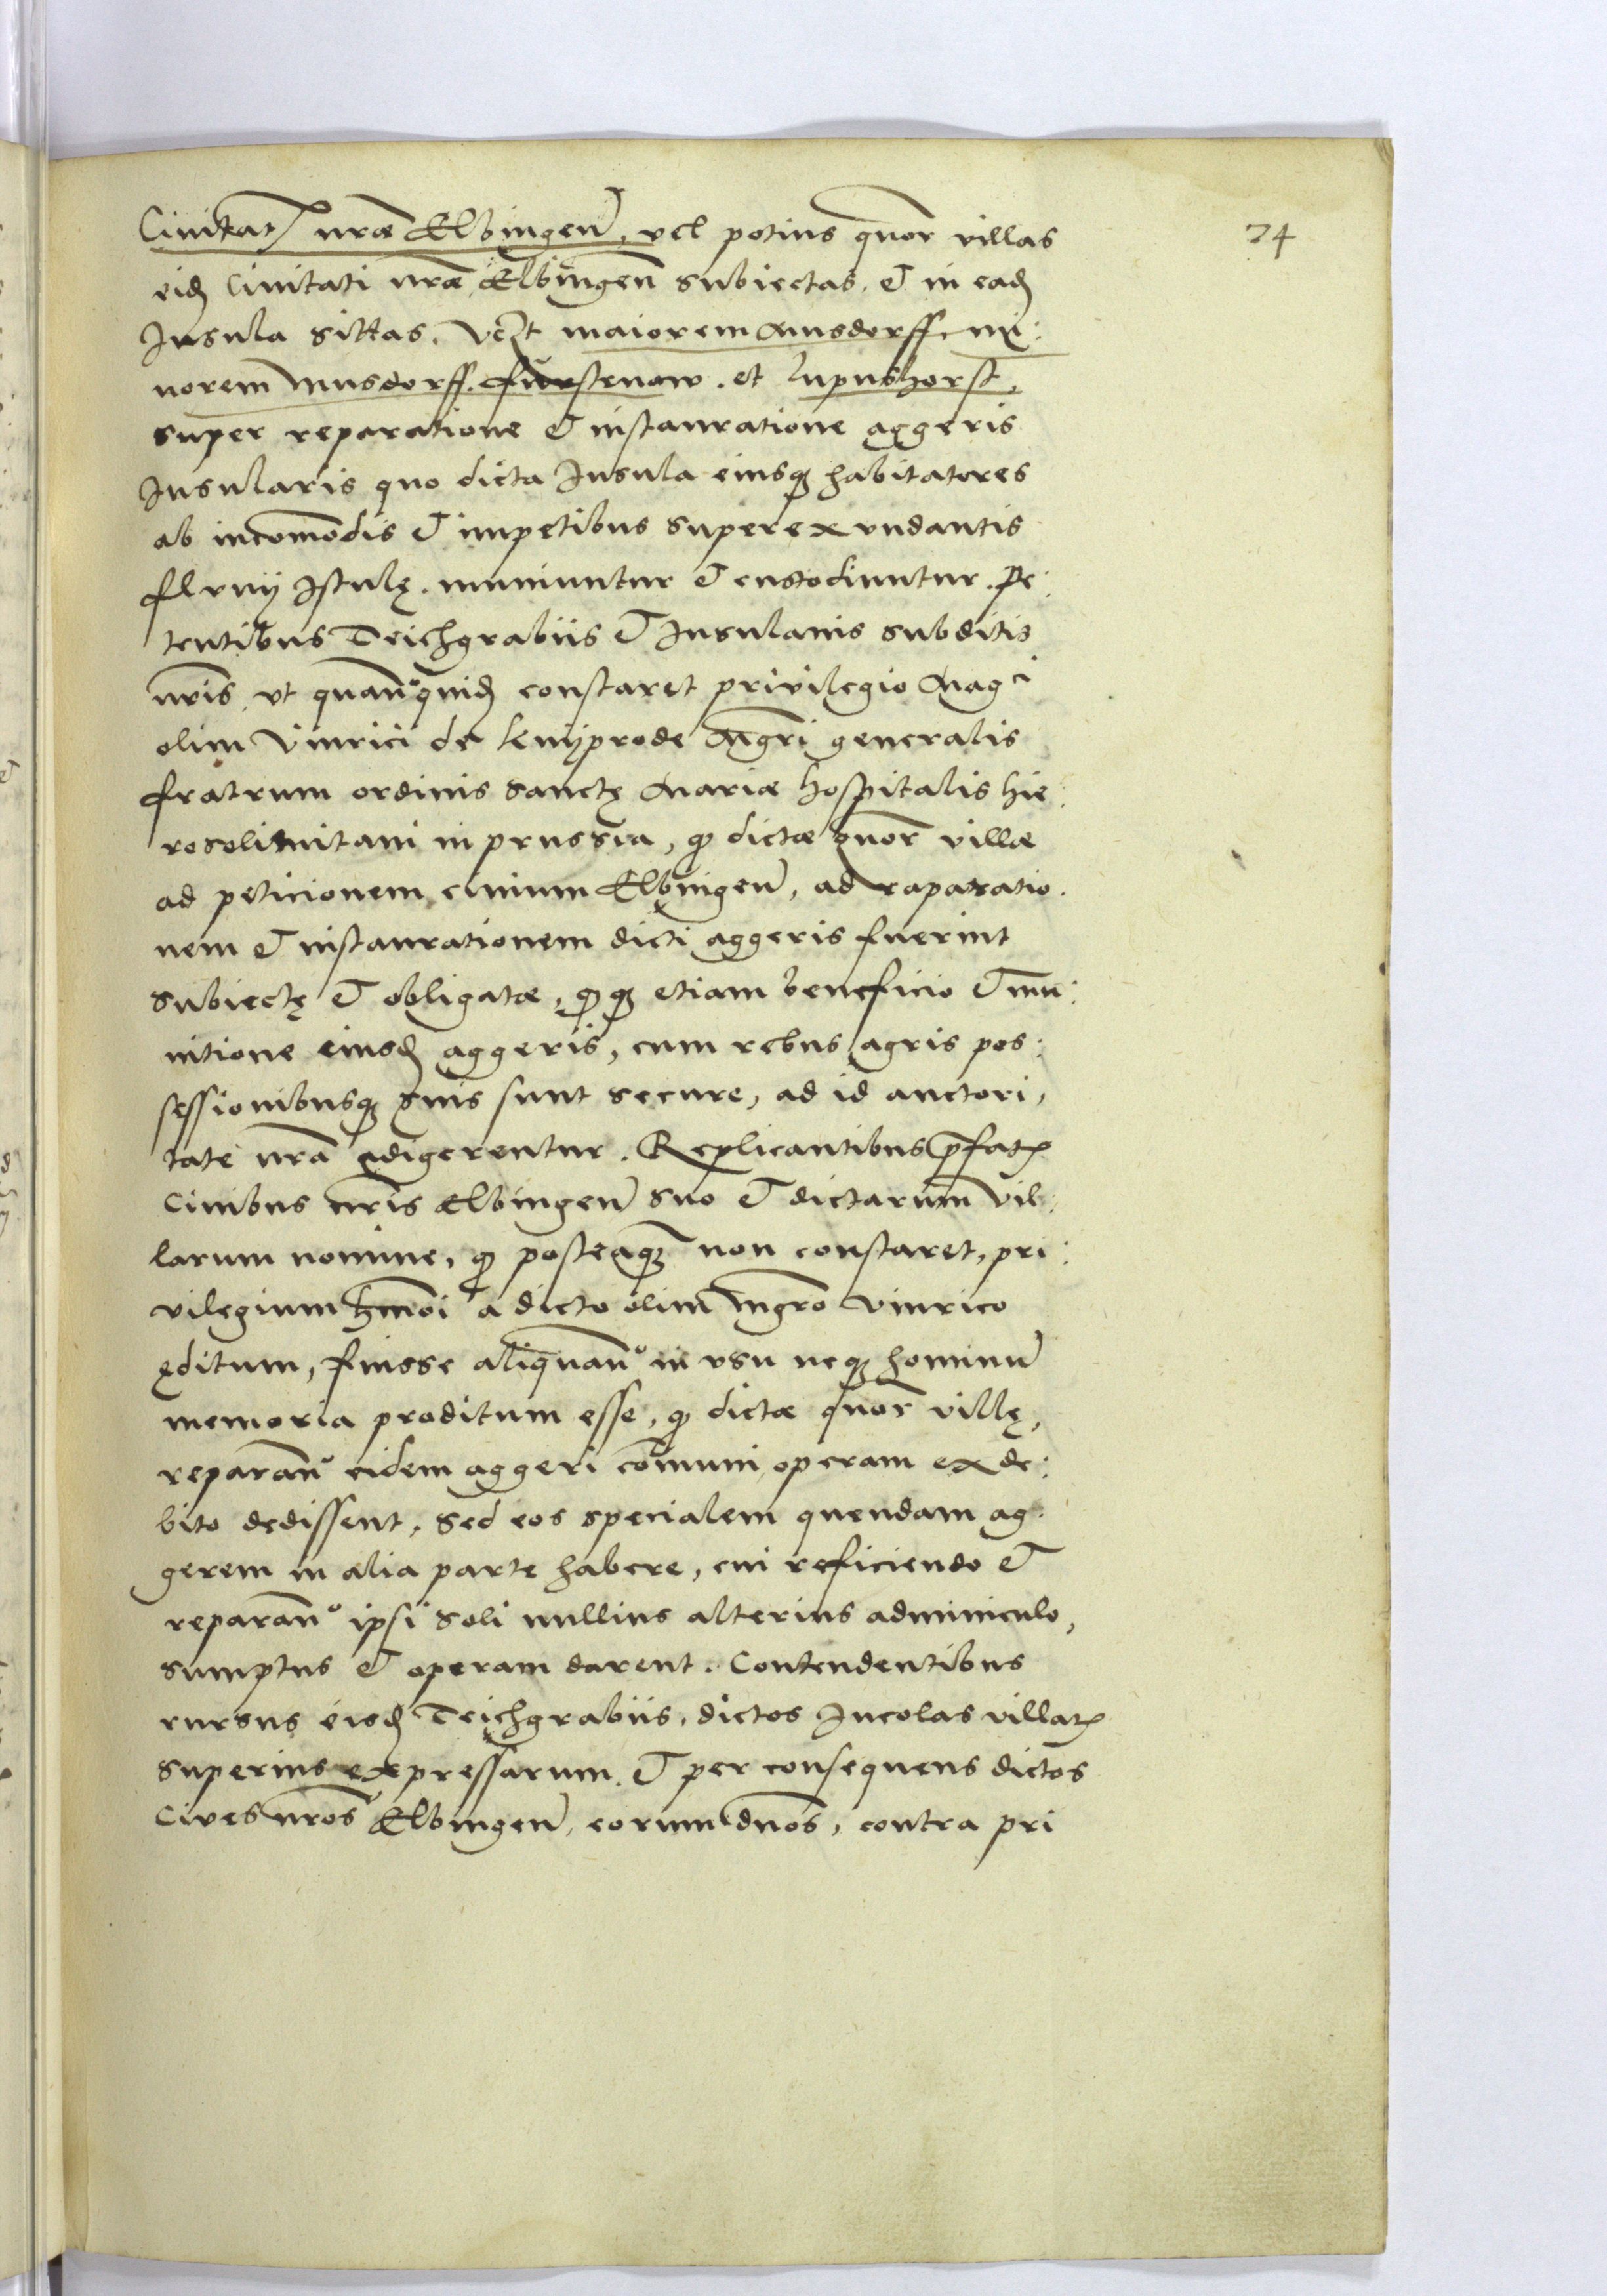 Ciuitatꝫ nræ Elbingen̄, vel potius quor̄ villas
74
eidꝫ Ciuitati nræ Elbingen̄ subiectas, et in eadꝫ
Insula sittas, vꝫt maiorem Mausdorff mi:
norem Musdorff. Furstenaw. et Lupushorst,
super reparatione et instauratione aggeris
Insularis quo dicta Insula eiusqꝫ habitatores
ab incom̄odis et impetibus superexundantis
fluuij Istulę. muniuntur et custodiuntur. Pe:
tentibus Teichgrabiis et Insulanis subditis
nr̄is, vt quan°quidꝫ constaret priuilegio Mag^ci
olim Vinrici de Knijprode Mgr̄i generalis
fratrum ordinis sanctę Mariæ Hospitalis Hie:
rosolimitani in Prussia, ꝙ dictæ quor̄ villæ
ad peticionem ciuium Elbingen̄, ad raparatio.
nem et instaurationem dicti aggeris fuerint
subiectę et obligatæ, ꝙqꝫ etiam beneficio et mu:
nitione eiusdꝫ aggeris, cum rebus agris pos:
sessionibusqꝫ suis sunt secure, ad id auctori,
tate nr̄a adigerentur. Replicantibus p̄fatꝫ
Ciuibus nr̄is Elbingen̄ suo et dictarum vil:
larum nomine, ꝙ posteaqꝫ non constaret, pri:
uilegium hm̄oi a dicto olim mgr̄o Vinrico
ęditum, fuisse aliquan° in vsu neqꝫ hominū
memoria proditum esse, ꝙ dictæ quor̄ villę,
reparan° eidem aggeri com̄uni operam ex de:
bito dedissent, Sed eos specialem quendam ag.
gerem in alia parte habere, cui reficiendo et
reparan° ipsi soli nullius alterius adminiculo,
sumptus et operam darent. Contendentibus
rursus eisdꝫ Teichgrabiis, dictos Incolas villarꝫ
superius expressarum. et per consequens dictos
Ciues nr̄os Elbingen̄, eorum dn̄os, contra pri